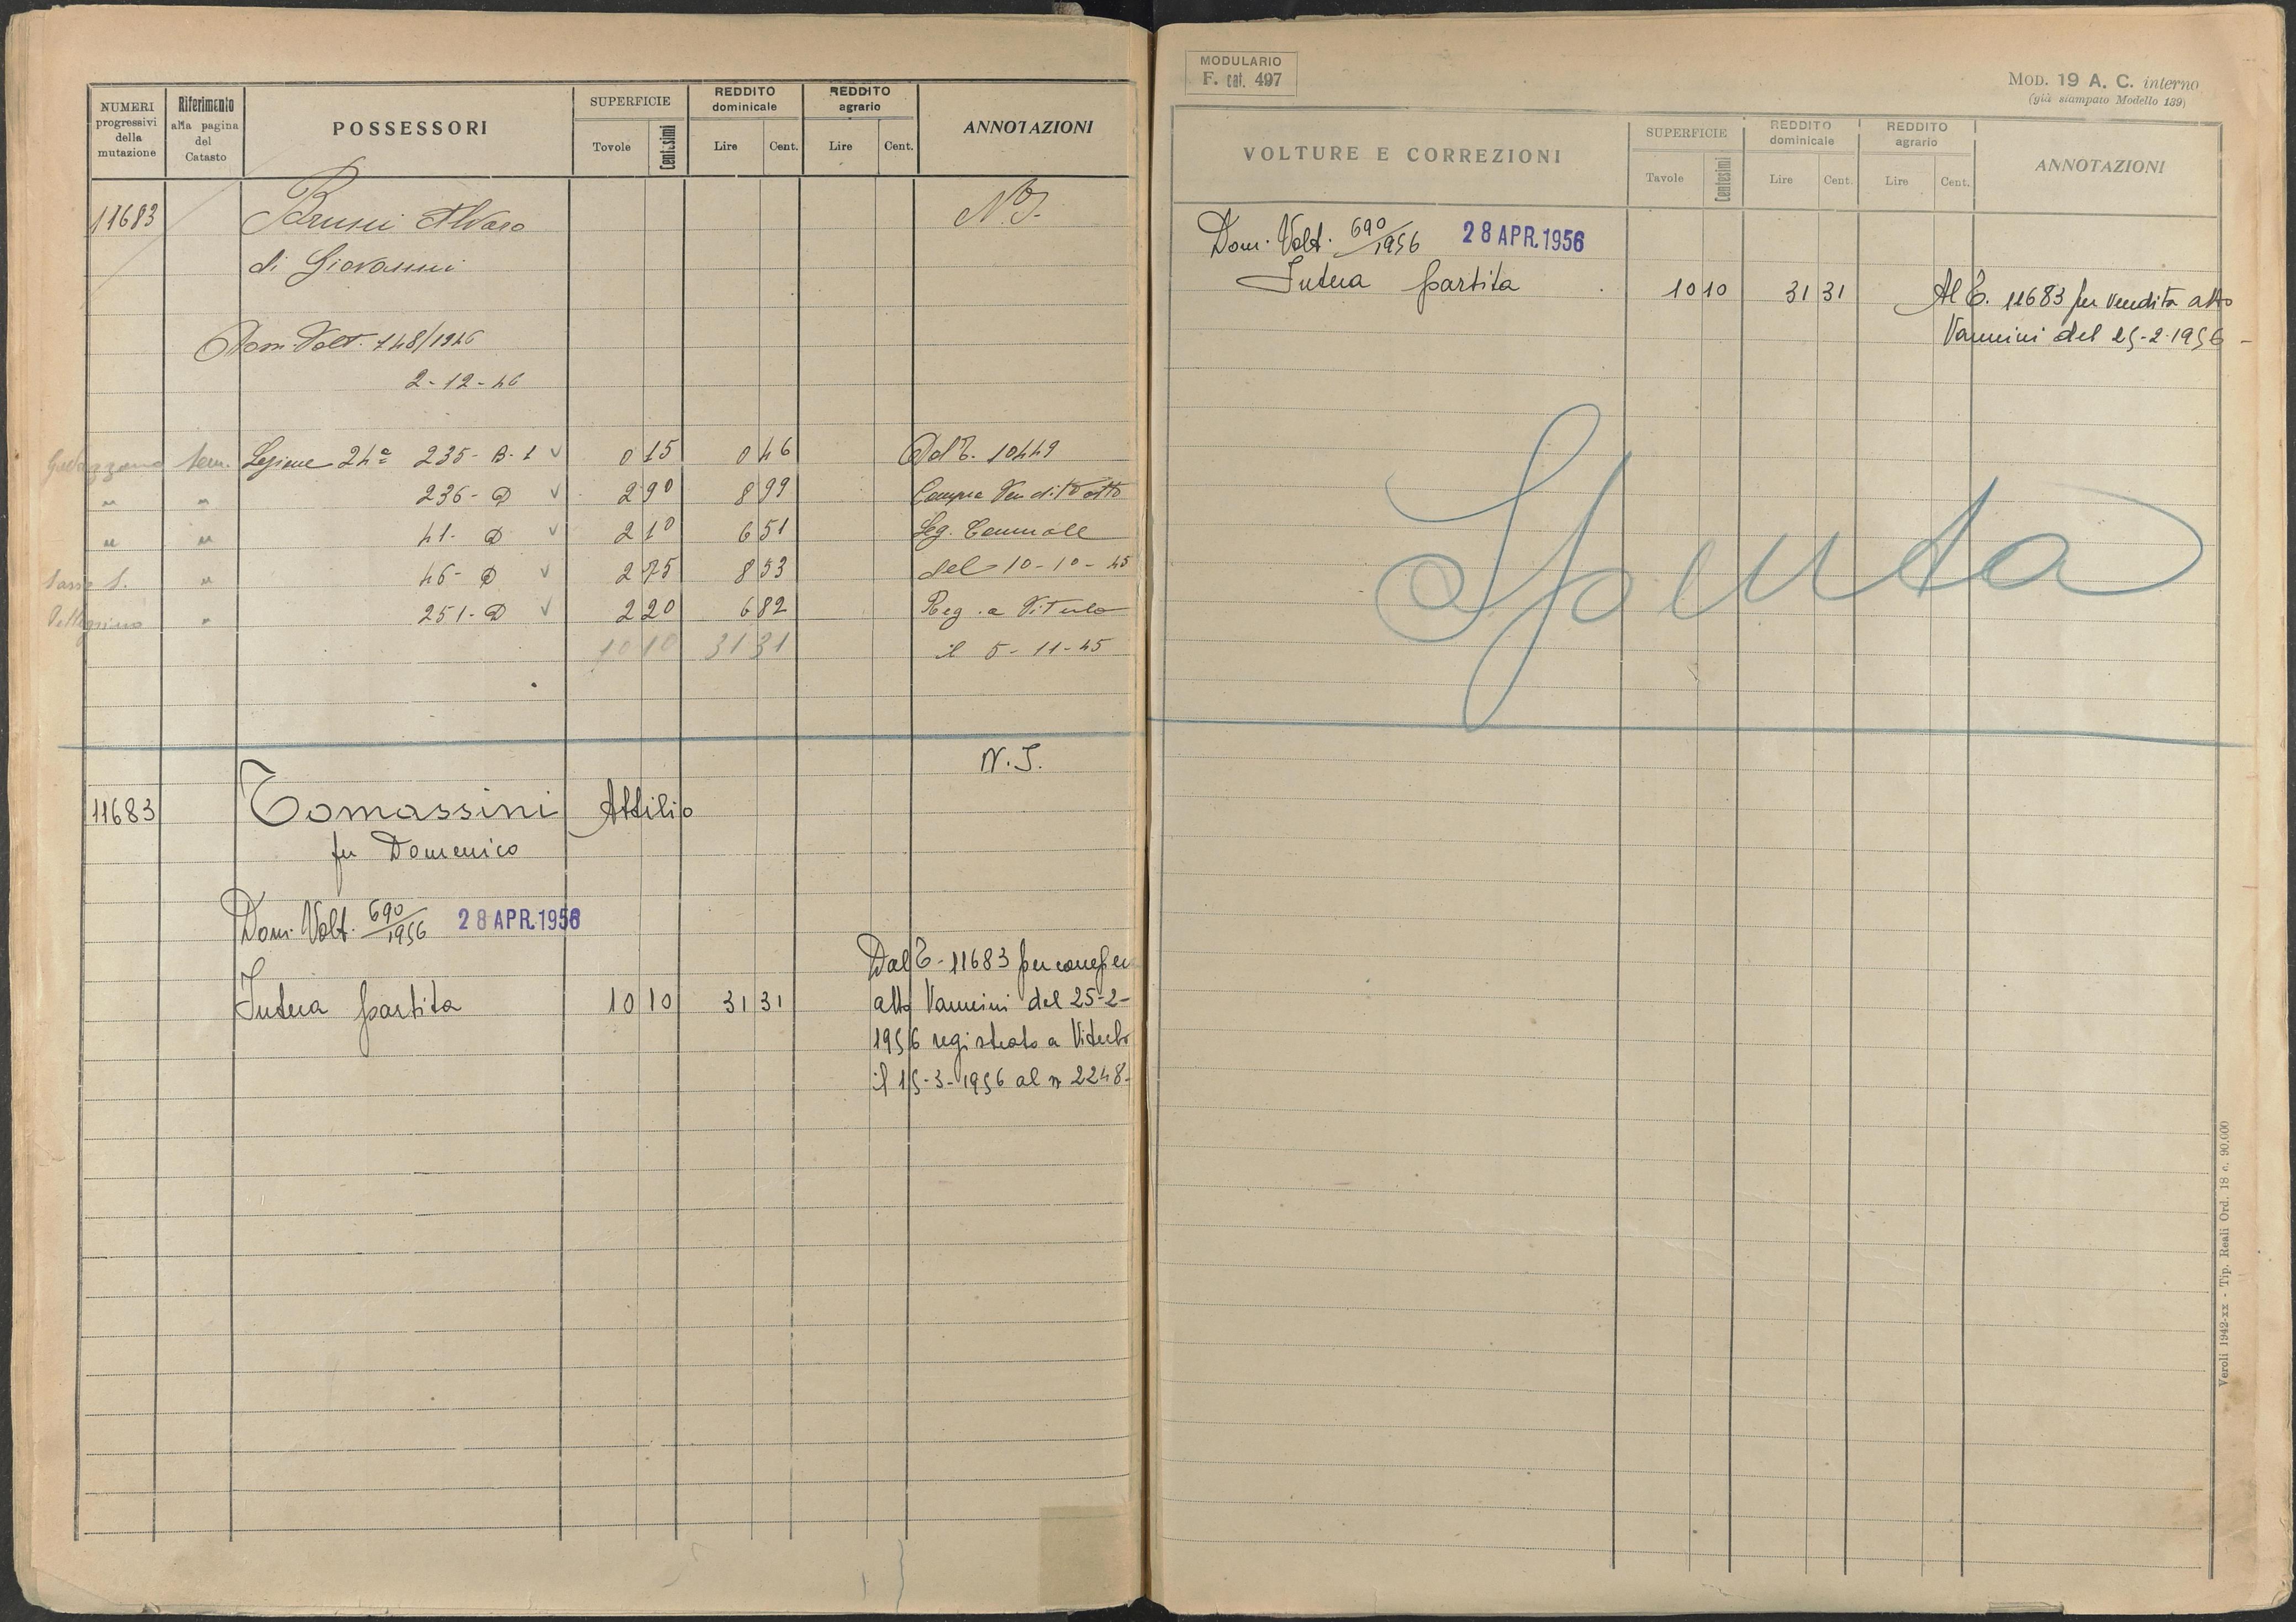 NUMERI progressivi della mutazione
Riferimento alla pagina del Catasto
POSSESSORI
SUPERFICIE
Tovole Centesimi
REDDITO dominicale
Lire Cent.
REDDITO agrario
Lire Cent.
ANNOTAZIONI
11683 Alvaro N.I.
di Giovanni
Dom. Volt. 748/1946
2-12-46
Sem. Sezione 24ª 235-B-1 √ 0 15 0 46 Dal T. 10449
" " 236-D √ 2 90 8 99 Compra Vendita atto
" " 41-D √ 2 10 6 51 Seg.
" 46-D √ 2 75 8 53 del 10-10-45
" 251-D √ 2 20 6 82 Reg. a Viterbo
10 10 31 31 il 5-11-45
N.I.
11683 Tomassini Attilio
fu Domenico
Dom. Volt. 690/1956 28 APR. 1956
Intera partita 10 10 31 31
Dal T. 11683 per
atto Vannini del 25-2-
1956 registrato a Viterbo
il 15-3-1956 al n 2248-
MODULARIO
F. cat. 497
MOD. 19 A. C. interno
(già stampato Modello 139)
VOLTURE E CORREZIONI
SUPERFICIE
Tavole Centesimi
REDDITO dominicale
Lire Cent.
REDDITO agrario
Lire Cent.
ANNOTAZIONI
Dom. Volt. 690/1956 28 APR. 1956
Intera partita 10 10 31 31 Al T. 11683 per vendita atto
Vannini del 25-2-1956 -
Spenta
Veroli 1942-XX - Tip. Reali Ord. 18 c. 90.000